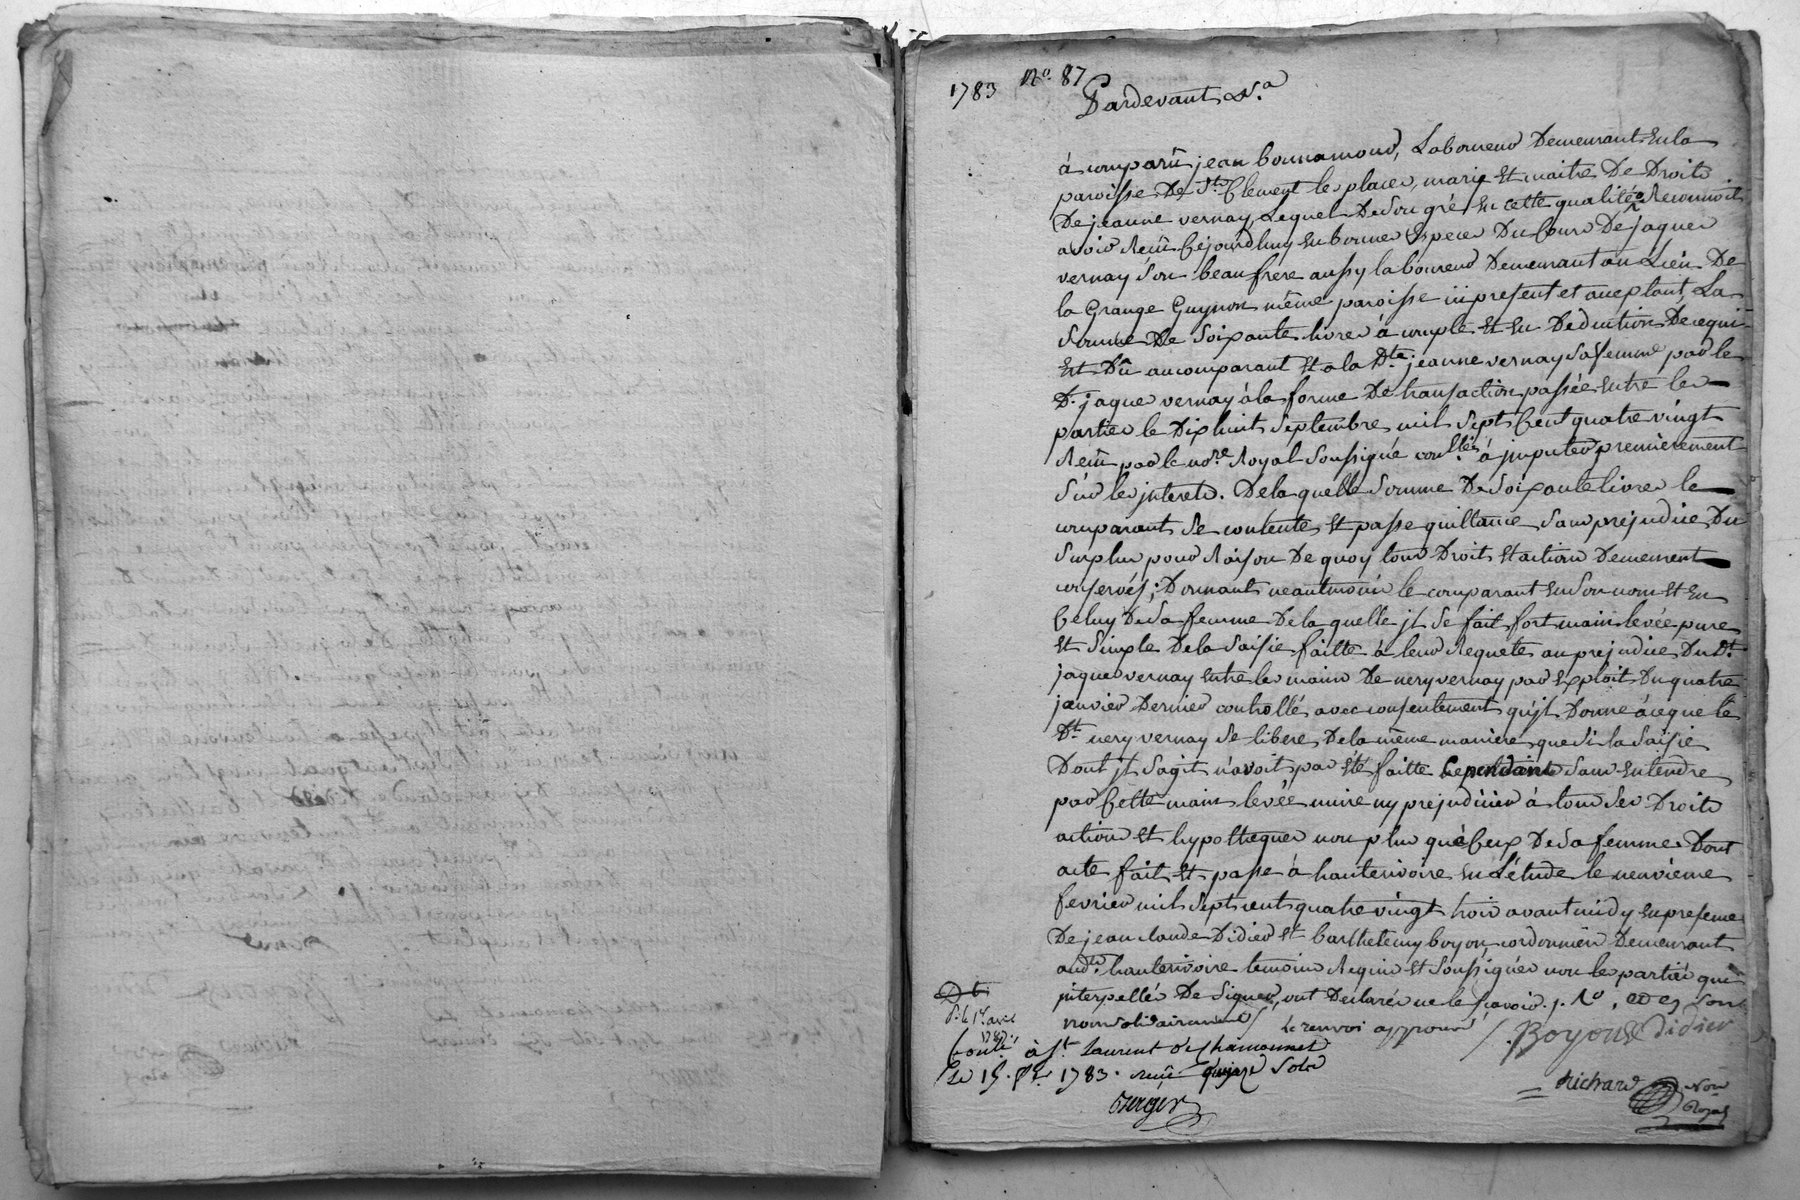 1783 No. 87
Pardevant &.a
à comparû jean bonnamour, Laboureur Demeurant en la
paroisse De St. Clement les places, mary et maitre Des Droits
De jeanne vernay Lequel De son gré en cette qualité Reconnoit
avoir Reçû cejourdhuy en bonnes especes Du cours De jaques
vernay son beau frere aussy laboureur Demeurant au Lieu De
la Grange Guynon même paroisse ii present et aceptant, La
somme De soixante livres à compte et en Deduction De ce qui
est Dû au comparant et a la Dte. jeanne vernay sa femme par le
Dt. jaques vernay à la forme De transaction passée entre les
parties le Dix huit septembre mil sept cent quatre vingt
Reçû par le nore. Royal soussigné conllée à imputer premierement
sur les interets. De la quelle somme De soixante livres le
comparant se contente et passe quittance sans prejudice Du
surplus pour Raison De quoy tous Droits et actions Demeurent
reservés; Donnant neantmoins le comparant en son nom et en
celuy De sa femme De la quelle jl se fait fort main levée pure
et simple De la saisie faitte à leur Requete au prejudice Du Dt.
jaques vernay entre les mains De nery vernay par exploit Du quatre
janvier Dernier controllé avec consentement qu'jl Donne à ce que le
Dt. nery vernay se libere De la même maniere que si la saisie
Dont jl s'agit n'avoit pas été faitte Cependant sans entendre
par cette main levée nuire ny prejudicier à tous ses Droits
actions et hypotheques non plus qu'à ceux De sa femme Dont
acte fait et passé à hauterivoire en L'étude le neuvieme
fevrier mil sept cent quatre vingt trois avant midy en presence
De jean claude Didier et barthelemy boyon, cordonniers Demeurant
aud. hauterivoire temoins Requis et soussignés non les parties qui
interpellées De signer, ont Declarées ne le sçavoir.
non solidairement / le renvoi approuvé / Boyon Didier
D. le 1er. avril
1783.
Conlé. à St. Laurent De Chamousset
Le 15. fer 1783. reçû quinze sols
Berger
Richard
Nore
Royal